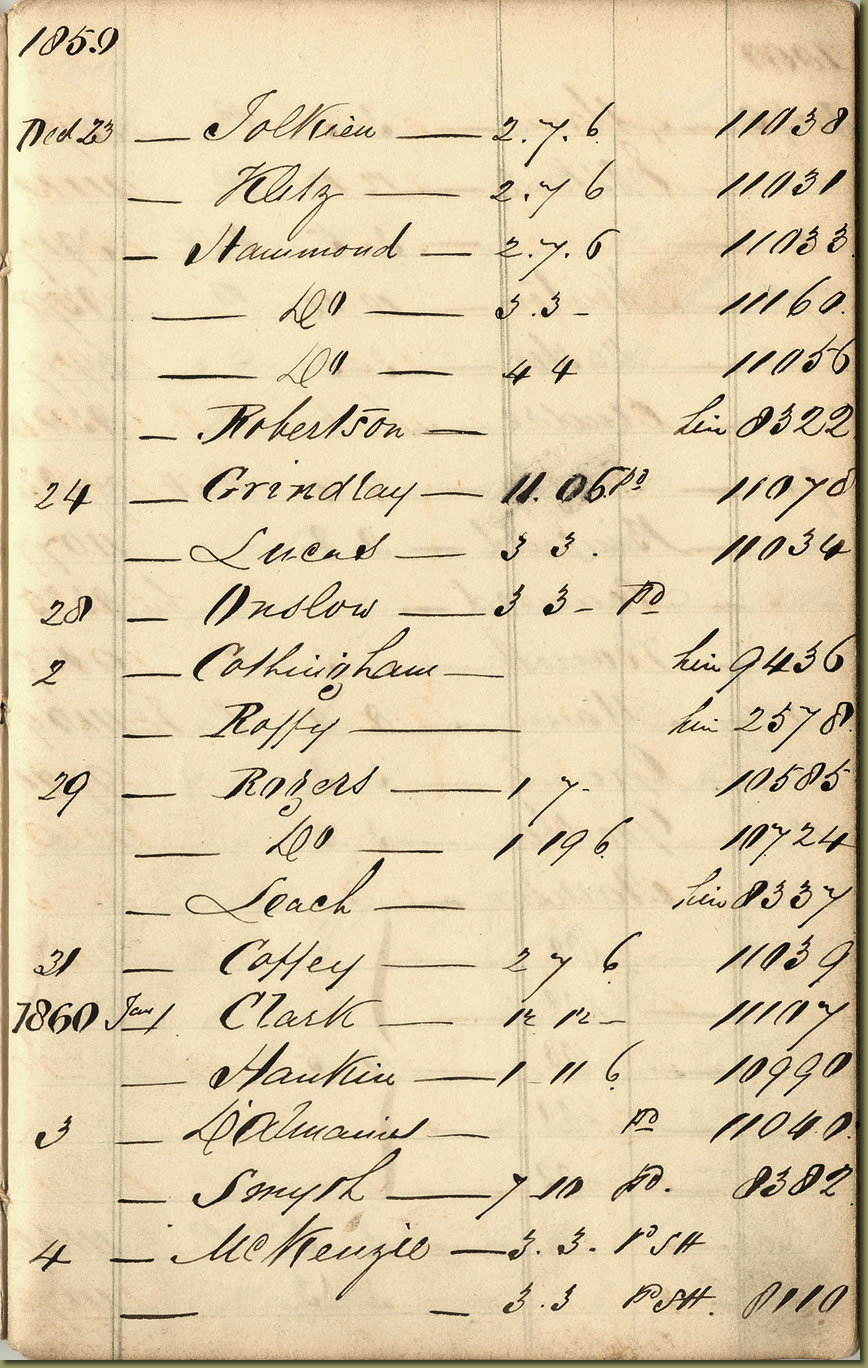 1859
Decd 23 — Tolkien — 2.7.6 11038
— Klitz — 2.7 6 11031
— Hammond — 2.7.6 11033
— Do — 3.3 - 11160.
— Do — 4 4 11056
— Robertson — hin 8322
24 — Grindlay — 11. 06. Pd 11078
— Lucas — 3 3 . 11034
28 — Onslow — 3 3 - Pd
2 — Cottingham — hin 9436
— Roffy — hin 2578.
29 — Rogers — 1 7 - 10585
— Do — 1 19 6. 10724
— Leach — hin 8337
31 — Coffey — 2 7 6 11039
1860 Jany 1. — Clark — 12 12 - 11107
— Hankin — 1 11 6. 10990
3 — D'Almaines — Pd 11040.
— Smyth — 7 10 Pd. 8382
4 — McKenzie — 3. 3. Pd SH
— — 3.3 Pd SH. 8110